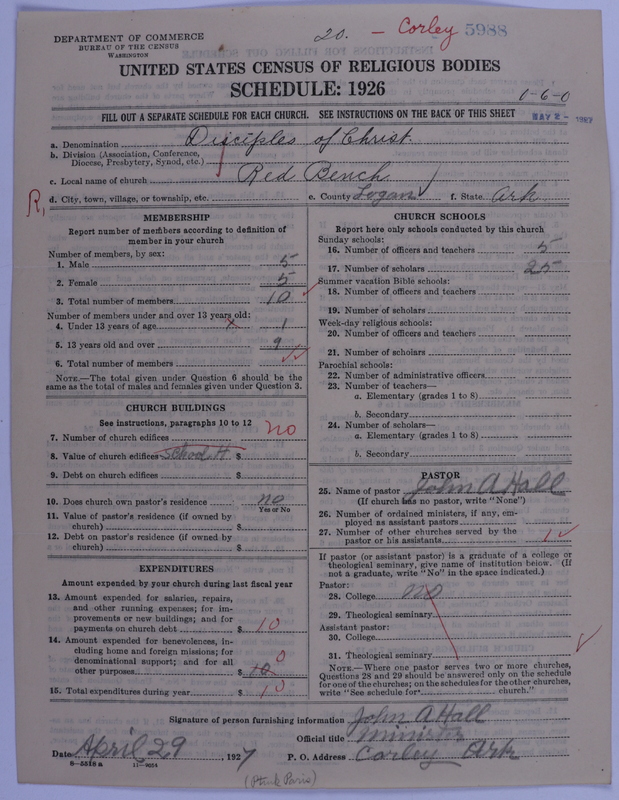 20. – Corley 5988
DEPARTMENT OF COMMERCE
BUREAU OF THE CENSUS
WASHINGTON
UNITED STATES CENSUS OF RELIGIOUS BODIES
SCHEDULE: 1926
1-6-0
FILL OUT A SEPARATE SCHEDULE FOR EACH CHURCH. SEE INSTRUCTIONS ON THE BACK OF THIS SHEET
MAY 2 - 1927
a. Denomination Disciples of Christ.
b. Division (Association, Conference,
Diocese, Presbytery, Synod, etc.)
c. Local name of church Red Bench
R, d. City, town, village, or township, etc. e. County Logan f. State Ark
MEMBERSHIP
Report number of members according to definition of
member in your church
Number of members, by sex:
1. Male 5
2. Female 5
3. Total number of members 10
Number of members under and over 13 years old:
4. Under 13 years of age x 1
5. 13 years old and over 9
6. Total number of members
NOTE.—The total given under Question 6 should be the
same as the total of males and females given under Question 3.
CHURCH BUILDINGS
See instructions, paragraphs 10 to 12
7. Number of church edifices no
8. Value of church edifices School H. $
9. Debt on church edifices $
10. Does church own pastor's residence no
Yes or No
11. Value of pastor's residence (if owned by
church) $
12. Debt on pastor's residence (if owned by
church) $
EXPENDITURES
Amount expended by your church during last fiscal year
13. Amount expended for salaries, repairs,
and other running expenses; for im-
provements or new buildings; and for
payments on church debt $ 10
14. Amount expended for benevolences, in-
cluding home and foreign missions; for
denominational support; and for all 0
other purposes $ 10
15. Total expenditures during year $ 10
CHURCH SCHOOLS
Report here only schools conducted by this church
Sunday schools:
16. Number of officers and teachers 5
17. Number of scholars 25
Summer vacation Bible schools:
18. Number of officers and teachers
19. Number of scholars
Week-day religious schools:
20. Number of officers and teachers
21. Number of scholars
Parochial schools:
22. Number of administrative officers
23. Number of teachers—
a. Elementary (grades 1 to 8)
b. Secondary
24. Number of scholars—
a. Elementary (grades 1 to 8)
b. Secondary
PASTOR
25. Name of pastor John A Hall
(If church has no pastor, write "None")
26. Number of ordained ministers, if any, em-
ployed as assistant pastors
27. Number of other churches served by the
pastor or his assistants 1
If pastor (or assistant pastor) is a graduate of a college or
theological seminary, give name of institution below. (If
not a graduate, write "No" in the space indicated.)
Pastor:
28. College no
29. Theological seminary
Assistant pastor:
30. College
31. Theological seminary
NOTE.—Where one pastor serves two or more churches,
Questions 28 and 29 should be answered only on the schedule
for one of the churches; on the schedules for the other churches,
write "See schedule for church."
Signature of person furnishing information John A Hall
Official title Minister
Date April 29, 1927 P. O. Address Corley Ark
8-5518 a 11-9054